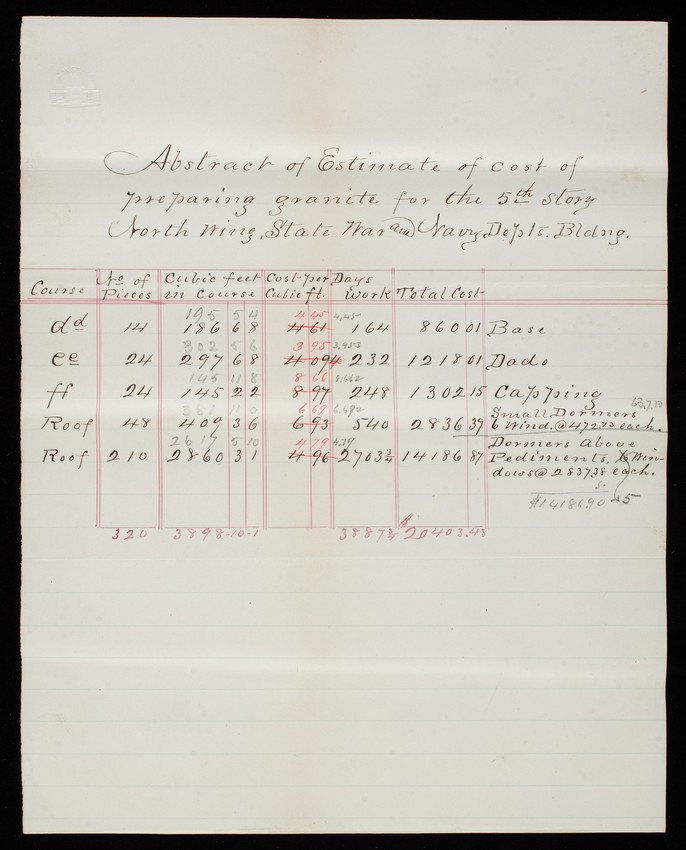 Abstract of Estimate of cost of
preparing granite for the 5th story
North Wing, State War and Navy Depts. Bldng.
Course No of Pieces Cubic feet in course Cost per Cubic ft. Days work Total Cost
195 5 4 4 45 4.45
dd 14 186 6 8 4 61 164 860 01 Base
302 5 6 3 95 3.953
ee 24 297 6 8 4 09 232 1218 01 Dado
145 11 8 8 66 8.662
ff 24 145 2 2 8 97 248 1302 15 Capping
351 11 0 6 69 6.690 Small Dormers
Roof 48 409 3 6 6 93 540 2836 39 6 Wind. @ 472.73 each.
2617 5 10 4 79 4.79 Dormers Above
Roof 210 2860 3 1 4 96 2703 3/4 14186 87 Pediments, Win-
dows @ 2837.38 each.
50
$14186.90 5
320 3898-10-1 3887 3/4 $20403.43